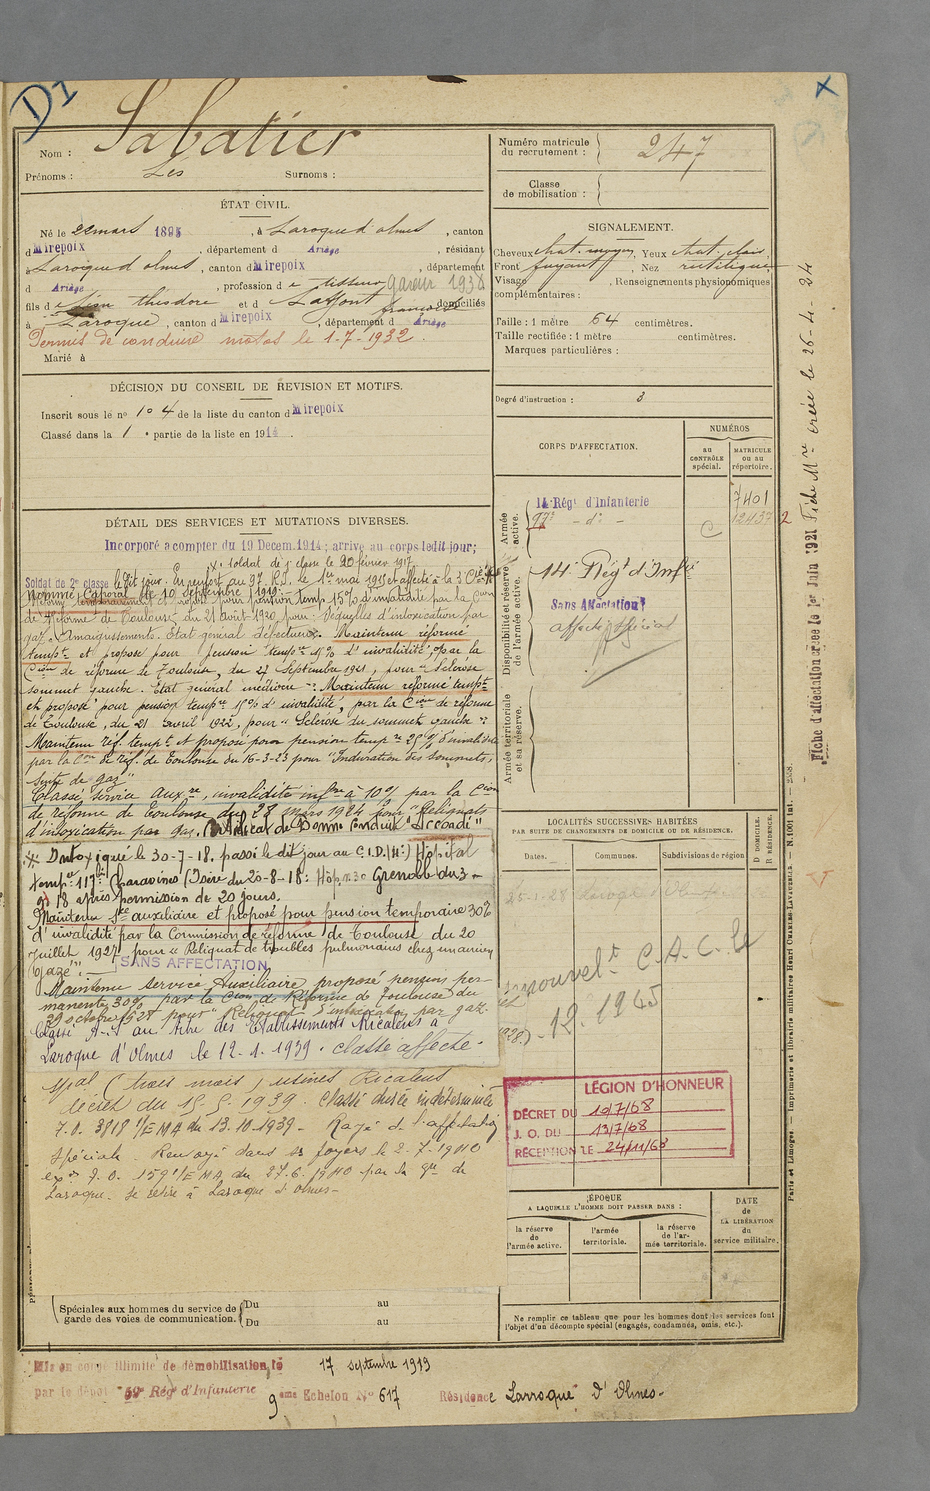 D1
Nom : Sabatier
Prénoms : Surnoms :
ÉTAT CIVIL.
Né le 22 mars 1895, à Laroque d'olmes, canton
d Mirepoix, département d Ariège, résidant
à Laroque d'olmes, canton d Mirepoix, département
d Ariège, profession de tisseur
fils de Léon Théodore et de Laffont françoise domiciliés
à Laroque, canton d Mirepoix, département d Ariège
Permis de conduire motos le 1-7-1932.
Marié à
DÉCISION DU CONSEIL DE REVISION ET MOTIFS.
Inscrit sous le n° 104 de la liste du canton d Mirepoix
Classé dans la 1e partie de la liste en 1914.
DÉTAIL DES SERVICES ET MUTATIONS DIVERSES.
Incorporé à compter du 19 Decem. 1914; arrivé au corps ledit jour;
soldat de 1e classe le 20 février 1917.
Soldat de 2e classe le dit jour. En renfort au 97e R.I. le 1er mai 1915 et affecté à la 3e Cie
Nommé Caporal le 10 Septembre 1919.
pension temp. 15% d'invalidité par la Cion
de Réforme de Toulouse, du 21 août 1920, pour : Séquelles d'intoxication par
gaz. Amaigrissement. Etat général défectueux. Maintenu réformé
tempre et proposé pour pension tempre d'invalidité, par la
Cion de réforme de Toulouse, du 27 Septembre 1921, pour "Sclérose
sommet gauche. Etat général médiocre": Maintenu réformé tempre
et proposé pour pension tempre 15% d'invalidité, par la Cion de réforme
de Toulouse, du 21 avril 1922, pour "Sclérose du sommet gauche":
Maintenu réf. tempre et proposé pour pension tempre 25% d'invalidité
par la Cion de réf. de Toulouse du 16-3-23 pour "Induration des sommets,
suite de gaz"
Classé service auxre, invalidité infre à 10% par la Cion
de réforme de Toulouse du 28 mars 1924 pour "Reliquats
d'intoxication par gaz. Certificat de Bonne Conduite "Accordé"
Intoxiqué le 30-7-18. passé le dit jour au C.I.D. Hôpital
temp. 117 Charavines (Isère) du 20-8-18 : Hôp. n 30 Grenoble du 3-
9-18 après permission de 20 jours.
Maintenu Sce auxiliaire et proposé pour pension temporaire 30%
d'invalidité par la Commission de réforme de Toulouse du 20
juillet 1927 pour "Reliquat de troubles pulmonaires chez un ancien
gazé". SANS AFFECTATION
Maintenu Service Auxiliaire proposé pension per-
manente 30% par la Cion de Réforme de Toulouse du
29 octobre pour "Reliquat d'intoxication par gaz.
Classé au titre des Etablissements Ricalens à
Laroque d'Olmes le 12-1-1939. Classé affecté
spal (trois mois) usines Ricalens
décret du 15-5-1939. Classé durée indéterminée
7.0. 3818 1/EMA du 13.10.1939 - Rayé de l'affectation
spéciale. Renvoyé dans ses foyers le 2-7-1940
1/EMA du 27.6.1940 par la de
Laroque. Se retire à Laroque d'Olmes-
Spéciales aux hommes du service de garde des voies de communication. Du au
Du au
Mis en congé illimité de démobilisation le 17 septembre 1919
par le dépôt 59e Rég d'Infanterie
9eme Echelon N° 617 Résidence Larroque d'Olmes-
Numéro matricule du recrutement : 247
Classe de mobilisation :
SIGNALEMENT.
Cheveux chat. moyen, Yeux chat. clair,
Front fuyant, Nez rectiligne
Visage , Renseignements physionomiques
complémentaires :
Taille : 1 mètre 64 centimètres.
Taille rectifiée : 1 mètre centimètres.
Marques particulières :
Degré d'instruction : 3
CORPS D'AFFECTATION.
NUMÉROS
au CONTRÔLE spécial.
MATRICULE ou au répertoire.
Armée active.
14 Régt d'Infanterie 7401
97e - d° - 12437
Disponibilité et réserve de l'armée active.
14e Régt d'Infie
Sans Affectation
affecté spécial
Armée territoriale et sa réserve.
LOCALITÉS SUCCESSIVES HABITÉES
PAR SUITE DE CHANGEMENTS DE DOMICILE OU DE RÉSIDENCE.
Dates. Communes. Subdivisions de région D DOMICILE. R RÉSIDENCE.
renouvelt C.A.C. le
-12.1945
LÉGION D'HONNEUR
DÉCRET DU 10/7/68
J. O. DU 13/7/68
RÉCEPTION LE 24/11/68
ÉPOQUE
A LAQUELLE L'HOMME DOIT PASSER DANS :
la réserve de l'armée active.
l'armée territoriale.
la réserve de l'armée territoriale.
DATE de LA LIBÉRATION du service militaire.
Ne remplir ce tableau que pour les hommes dont les services font
l'objet d'un décompte spécial (engagés, condamnés, omis, etc.).
Fiche d'affectation créée le 1er Juin 1921 Fiche Mre créée le 26-4-24
Paris et Limoges. — Imprimerie et librairie militaires Henri CHARLES-LAVAUZELLE. — N. 1001 Int.